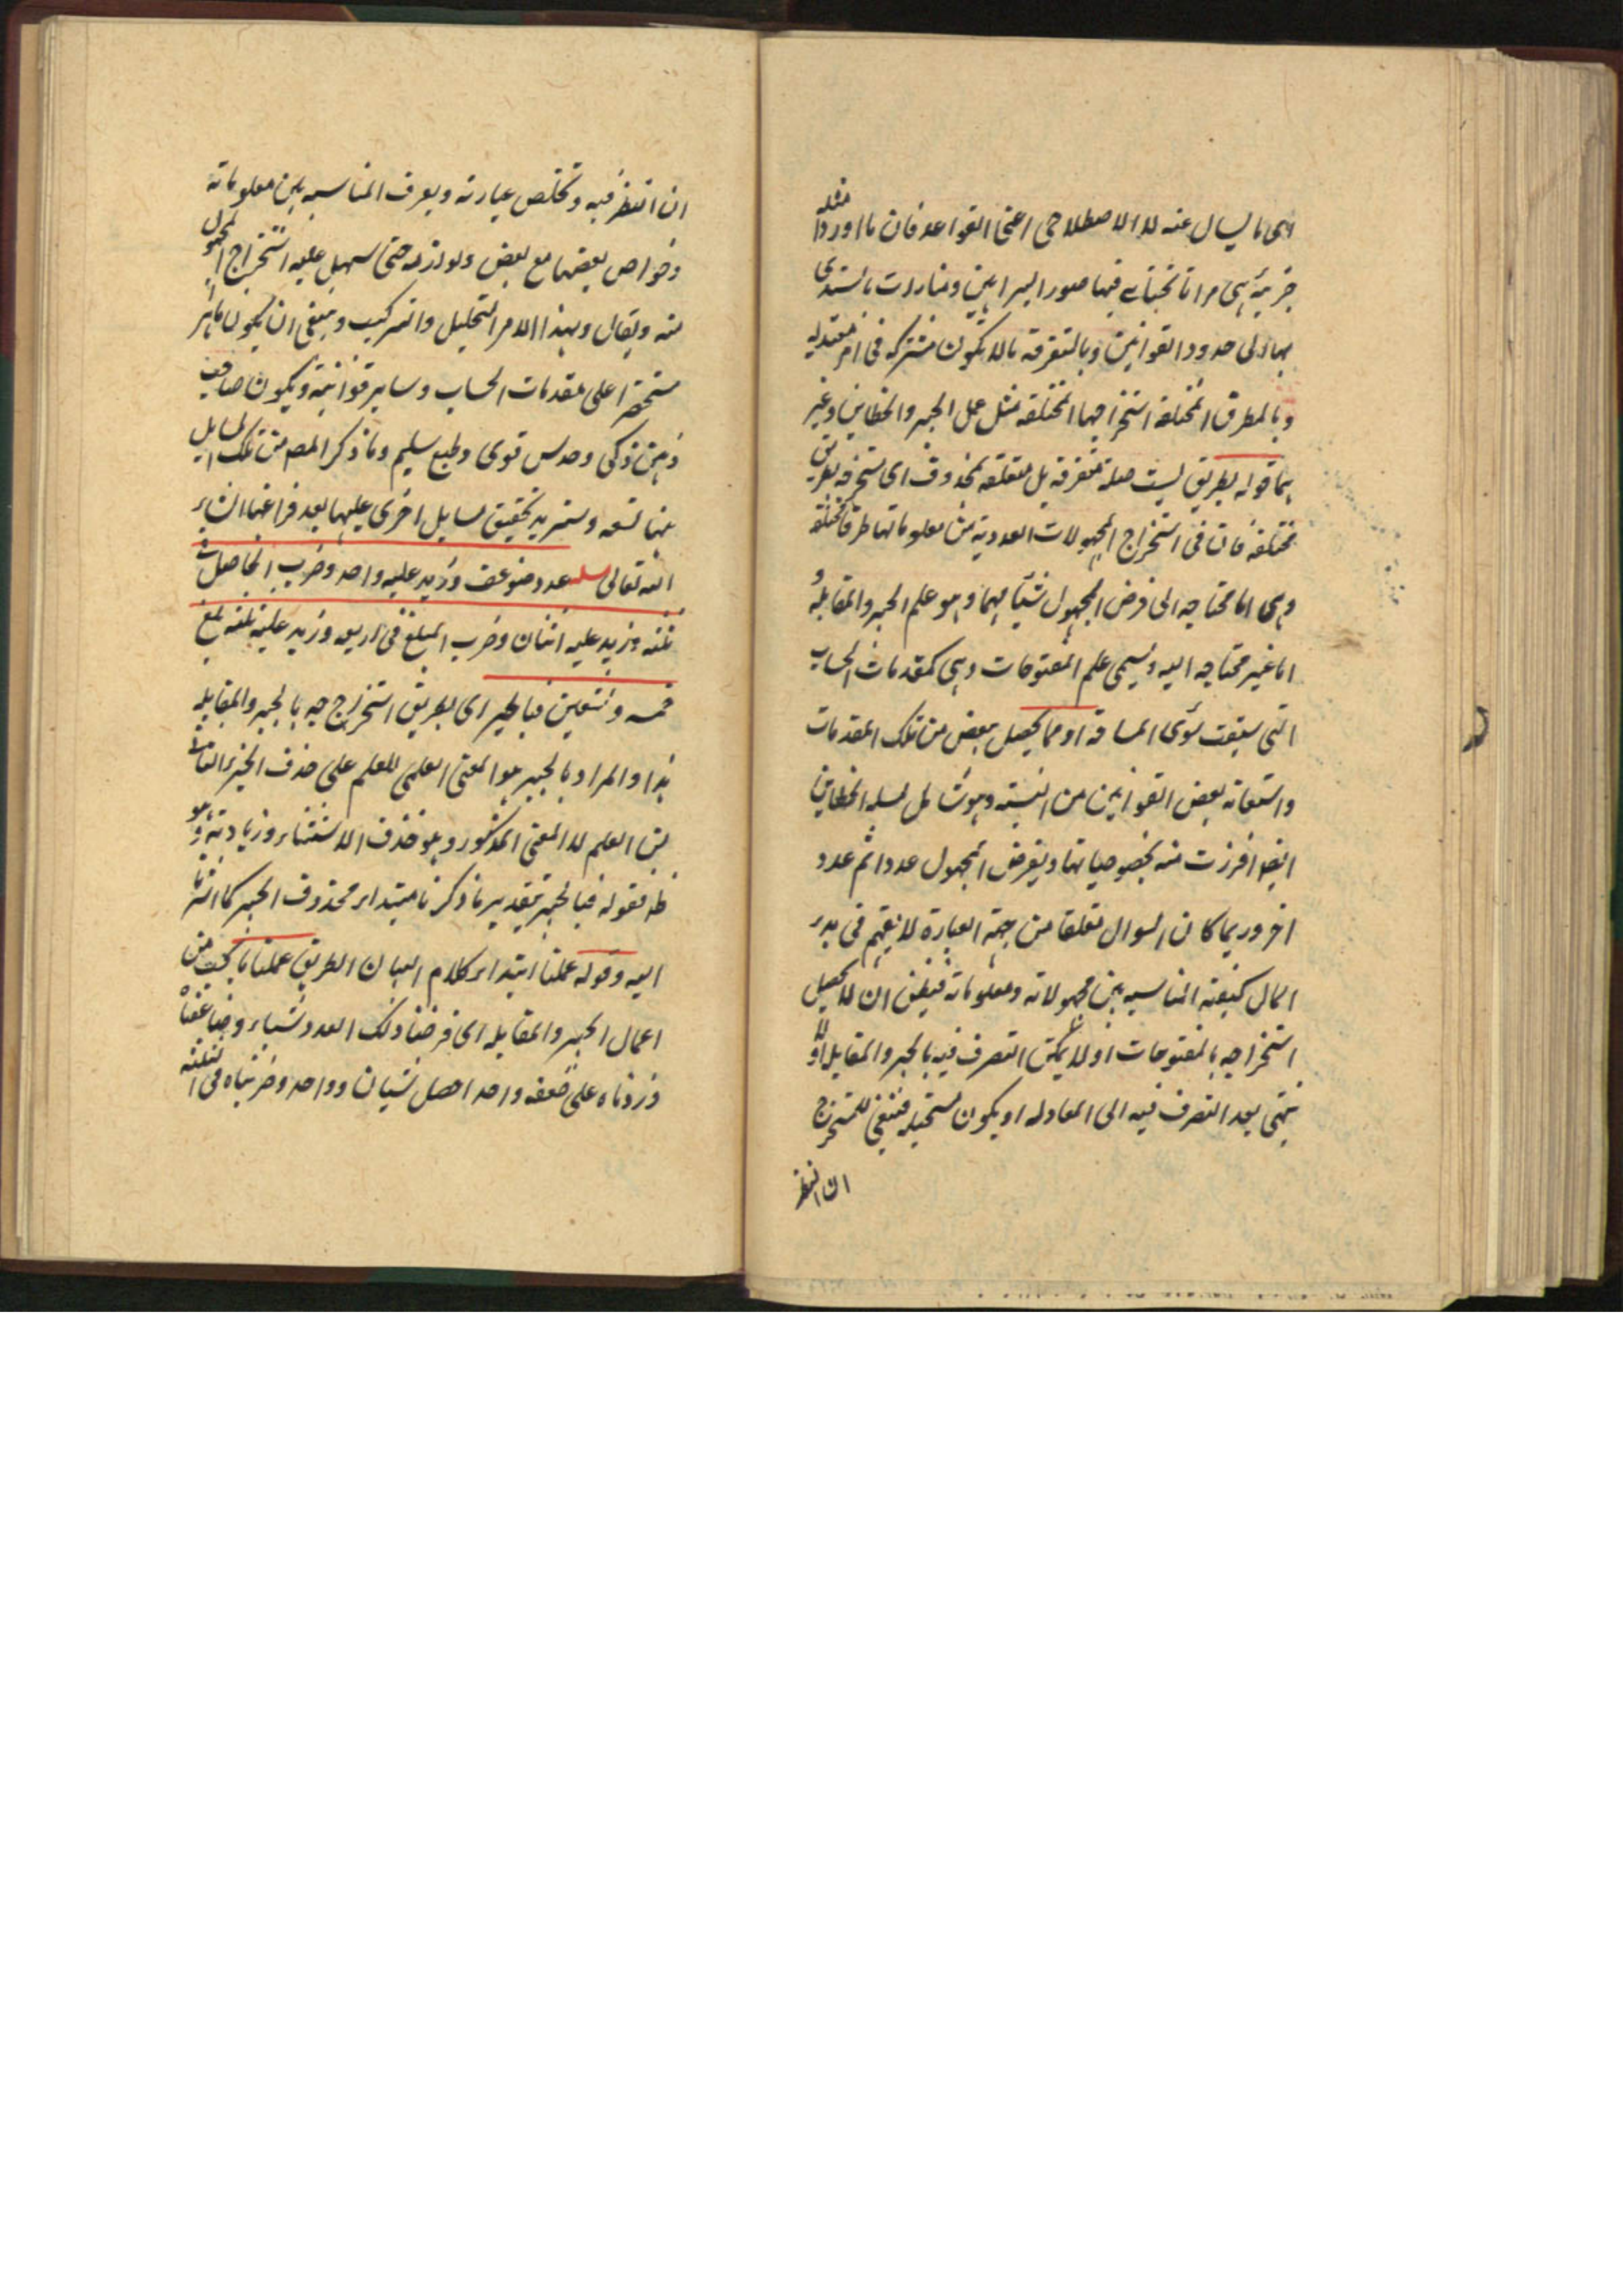 هى ما يسال عنه لا الاصطلاحى اعنى القواعد فان ما اوردا مثله
جزئية هى مرايا تجتلى فيها صور البراهين ومنارات يستدى
بها الى حدود القوانين وبالمتفرقه ما لا يكون مشتركه فى امر معتد به
وبالطرق المختلفه استخراجها المختلفه مثل عمل الجبر والخطاين وغير
هما قوله بطريق ليست صلة متفرقه بل متعلقه بمحذوف اى مستخرجه بطريق
مختلفه فان فى استخراج المجهولات العددية من معلوماتها طرقا مختلفه
وهى اما محتاجه الى فرض المجهول شيئا مبهما وهو علم الجبر والمقابله و
اما غير محتاجه اليه ويسمى علم المفتوحات وهى كمقدمات الحساب
التى سبقت سوى المساحة او مما يحصل بعض من تلك المقدمات
واستعانه بعض القوانين من النسبته وهو شامل لمسله الخطاين
ايضا افرزت منه بخصوصياتها ويفرض المجهول عددا ثم عدد
اخر وربما كان السوال مغلقا من جهة العبارة لا يفهم فى بدء
الحال كيفية المناسبه بين مجهولاته ومعلوماته فيظن ان لا يحصل
استخراجه بالمفتوحات او لا يمكن التصرف فيه بالجبر والمقابله او لا
ينتهى بعد التصرف فيه الى المعادله او يكون مستحيله فينبغى للمستخرج
ان النظر
ان النظر فيه وتخلص عبارته ويعرف المناسبه بين معلوماته
وخواص بعضها مع بعض ولوازمه حتى سهل عليه استخراج المجهول
منه ويقال ولهذا الامر التحليل والتركيب وينبغى ان يكون ماهرا
مستحضرا على مقدمات الحساب وساير قوانينه ويكون صاحب
ذهن ذكى وحدس قوى وطبع سليم وما ذكر المصر من تلك المسايل
ههنا تسعه وسنزيد تحقيق مسايل اخرى عليها بعد فراغنا انشاء
الله تعالى مسله عدد ضوعف وزيد عليه واحد وضرب الحاصل فى
ثلثه وزيد عليه اثنان وضرب المبلغ فى اربعه وزيد عليه ثلثه بلغ
خمسه وتسعين فبالجبر اى بطريق استخراجه بالجبر والمقابله
هذا والمراد بالجبر هو المعنى العلمى للعلم على حذف الجزء الثانى
من العلم لا المعنى المذكور وهو حذف الاستثناء وزيادته وهو
ظ فقوله فبالجبر بتقدير ما ذكرنا مبتداء محذوف الخبر كما اشرنا
اليه وقوله عملنا ابتداء كلام لبيان الطريق عملنا ما يجب من
اعمال الجبر والمقابله اى فرضنا ذلك العدد شياء وضاعفناه
وزدناه على ضعفه واحد احصل شيان وواحد وضربناه فى الثلثه